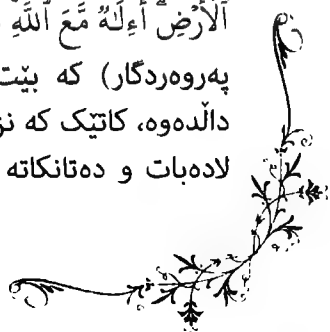 ٱلْأَرْضِ ۗ أَءِلَٰهٌ مَّعَ ٱللَّهِ
پەروەردگار) کە بێت
داڵدەوە، کاتێک کە
لادەبات و دەتانکاتە